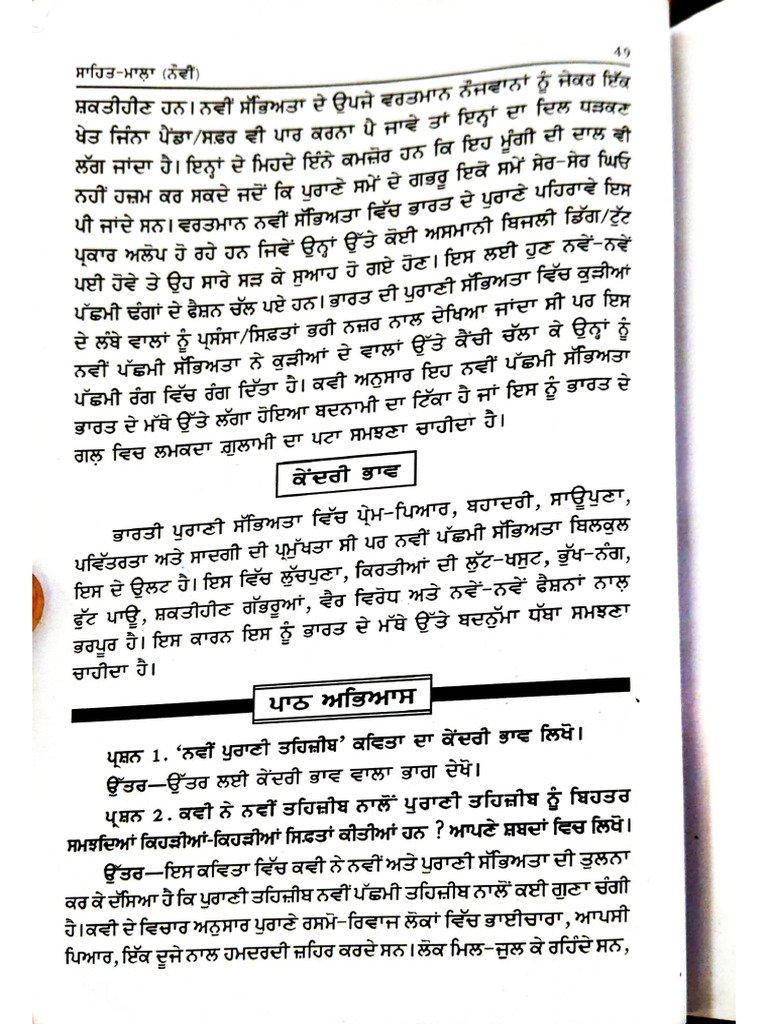 49
ਸਾਹਿਤ-ਮਾਲਾ (ਨੌਵੀਂ)
ਸ਼ਕਤੀਹੀਣ ਹਨ। ਨਵੀਂ ਸੱਭਿਅਤਾ ਦੇ ਉਪਜੇ ਵਰਤਮਾਨ ਨੌਜਵਾਨਾਂ ਨੂੰ ਜੇਕਰ ਇੱਕ
ਖੇਤ ਜਿੰਨਾ ਪੈਂਡਾ/ਸਫ਼ਰ ਵੀ ਪਾਰ ਕਰਨਾ ਪੈ ਜਾਵੇ ਤਾਂ ਇਨ੍ਹਾਂ ਦਾ ਦਿਲ ਧੜਕਣ
ਲੱਗ ਜਾਂਦਾ ਹੈ। ਇਨ੍ਹਾਂ ਦੇ ਮਿਹਦੇ ਇੰਨੇ ਕਮਜ਼ੋਰ ਹਨ ਕਿ ਇਹ ਮੂੰਗੀ ਦੀ ਦਾਲ ਵੀ
ਨਹੀਂ ਹਜ਼ਮ ਕਰ ਸਕਦੇ ਜਦੋਂ ਕਿ ਪੁਰਾਣੇ ਸਮੇਂ ਦੇ ਗਭਰੂ ਇਕੋ ਸਮੇਂ ਸੇਰ-ਸੇਰ ਘਿਓ
ਪੀ ਜਾਂਦੇ ਸਨ। ਵਰਤਮਾਨ ਨਵੀਂ ਸੱਭਿਅਤਾ ਵਿੱਚ ਭਾਰਤ ਦੇ ਪੁਰਾਣੇ ਪਹਿਰਾਵੇ ਇਸ
ਪ੍ਰਕਾਰ ਅਲੋਪ ਹੋ ਰਹੇ ਹਨ ਜਿਵੇਂ ਉਨ੍ਹਾਂ ਉੱਤੇ ਕੋਈ ਅਸਮਾਨੀ ਬਿਜਲੀ ਡਿੱਗ/ਟੁੱਟ
ਪਈ ਹੋਵੇ ਤੇ ਉਹ ਸਾਰੇ ਸੜ ਕੇ ਸੁਆਹ ਹੋ ਗਏ ਹੋਣ। ਇਸ ਲਈ ਹੁਣ ਨਵੇਂ-ਨਵੇਂ
ਪੱਛਮੀ ਢੰਗਾਂ ਦੇ ਫੈਸ਼ਨ ਚੱਲ ਪਏ ਹਨ। ਭਾਰਤ ਦੀ ਪੁਰਾਣੀ ਸੱਭਿਅਤਾ ਵਿੱਚ ਕੁੜੀਆਂ
ਦੇ ਲੰਬੇ ਵਾਲਾਂ ਨੂੰ ਪ੍ਰਸੰਸਾ/ਸਿਫ਼ਤਾਂ ਭਰੀ ਨਜ਼ਰ ਨਾਲ ਦੇਖਿਆ ਜਾਂਦਾ ਸੀ ਪਰ ਇਸ
ਨਵੀਂ ਪੱਛਮੀ ਸੱਭਿਅਤਾ ਨੇ ਕੁੜੀਆਂ ਦੇ ਵਾਲਾਂ ਉੱਤੇ ਕੈਂਚੀ ਚੱਲਾ ਕੇ ਉਨ੍ਹਾਂ ਨੂੰ
ਪੱਛਮੀ ਰੰਗ ਵਿੱਚ ਰੰਗ ਦਿੱਤਾ ਹੈ। ਕਵੀ ਅਨੁਸਾਰ ਇਹ ਨਵੀਂ ਪੱਛਮੀ ਸੱਭਿਅਤਾ
ਭਾਰਤ ਦੇ ਮੱਥੇ ਉੱਤੇ ਲੱਗਾ ਹੋਇਆ ਬਦਨਾਮੀ ਦਾ ਟਿੱਕਾ ਹੈ ਜਾਂ ਇਸ ਨੂੰ ਭਾਰਤ ਦੇ
ਗਲ਼ ਵਿਚ ਲਮਕਦਾ ਗ਼ੁਲਾਮੀ ਦਾ ਪਟਾ ਸਮਝਣਾ ਚਾਹੀਦਾ ਹੈ।
ਕੇਂਦਰੀ ਭਾਵ
ਭਾਰਤੀ ਪੁਰਾਣੀ ਸੱਭਿਅਤਾ ਵਿੱਚ ਪ੍ਰੇਮ-ਪਿਆਰ, ਬਹਾਦਰੀ, ਸਾਊਪੁਣਾ,
ਪਵਿੱਤਰਤਾ ਅਤੇ ਸਾਦਗੀ ਦੀ ਪ੍ਰਮੁੱਖਤਾ ਸੀ ਪਰ ਨਵੀਂ ਪੱਛਮੀ ਸੱਭਿਅਤਾ ਬਿਲਕੁਲ
ਇਸ ਦੇ ਉਲਟ ਹੈ। ਇਸ ਵਿੱਚ ਲੁੱਚਪੁਣਾ, ਕਿਰਤੀਆਂ ਦੀ ਲੁੱਟ-ਖਸੁਟ, ਭੁੱਖ-ਨੰਗ,
ਫੁੱਟ ਪਾਊ, ਸ਼ਕਤੀਹੀਣ ਗੱਭਰੂਆਂ, ਵੈਰ ਵਿਰੋਧ ਅਤੇ ਨਵੇਂ-ਨਵੇਂ ਫੈਸ਼ਨਾਂ ਨਾਲ਼
ਭਰਪੂਰ ਹੈ। ਇਸ ਕਾਰਨ ਇਸ ਨੂੰ ਭਾਰਤ ਦੇ ਮੱਥੇ ਉੱਤੇ ਬਦਨੁੱਮਾ ਧੱਬਾ ਸਮਝਣਾ
ਚਾਹੀਦਾ ਹੈ।
ਪਾਠ ਅਭਿਆਸ
ਪ੍ਰਸ਼ਨ 1. ‘ਨਵੀਂ ਪੁਰਾਣੀ ਤਹਿਜ਼ੀਬ’ ਕਵਿਤਾ ਦਾ ਕੇਂਦਰੀ ਭਾਵ ਲਿਖੋ।
ਉੱਤਰ—ਉੱਤਰ ਲਈ ਕੇਂਦਰੀ ਭਾਵ ਵਾਲਾ ਭਾਗ ਦੇਖੋ।
ਪ੍ਰਸ਼ਨ 2. ਕਵੀ ਨੇ ਨਵੀਂ ਤਹਿਜ਼ੀਬ ਨਾਲੋਂ ਪੁਰਾਣੀ ਤਹਿਜ਼ੀਬ ਨੂੰ ਬਿਹਤਰ
ਸਮਝਦਿਆਂ ਕਿਹੜੀਆਂ-ਕਿਹੜੀਆਂ ਸਿਫ਼ਤਾਂ ਕੀਤੀਆਂ ਹਨ ? ਆਪਣੇ ਸ਼ਬਦਾਂ ਵਿਚ ਲਿਖੋ।
ਉੱਤਰ—ਇਸ ਕਵਿਤਾ ਵਿੱਚ ਕਵੀ ਨੇ ਨਵੀਂ ਅਤੇ ਪੁਰਾਣੀ ਸੱਭਿਅਤਾ ਦੀ ਤੁਲਨਾ
ਕਰ ਕੇ ਦੱਸਿਆ ਹੈ ਕਿ ਪੁਰਾਣੀ ਤਹਿਜ਼ੀਬ ਨਵੀਂ ਪੱਛਮੀ ਤਹਿਜ਼ੀਬ ਨਾਲੋਂ ਕਈ ਗੁਣਾ ਚੰਗੀ
ਹੈ। ਕਵੀ ਦੇ ਵਿਚਾਰ ਅਨੁਸਾਰ ਪੁਰਾਣੇ ਰਸਮੋ-ਰਿਵਾਜ ਲੋਕਾਂ ਵਿੱਚ ਭਾਈਚਾਰਾ, ਆਪਸੀ
ਪਿਆਰ, ਇੱਕ ਦੂਜੇ ਨਾਲ ਹਮਦਰਦੀ ਜ਼ਹਿਰ ਕਰਦੇ ਸਨ। ਲੋਕ ਮਿਲ-ਜੁਲ ਕੇ ਰਹਿੰਦੇ ਸਨ,